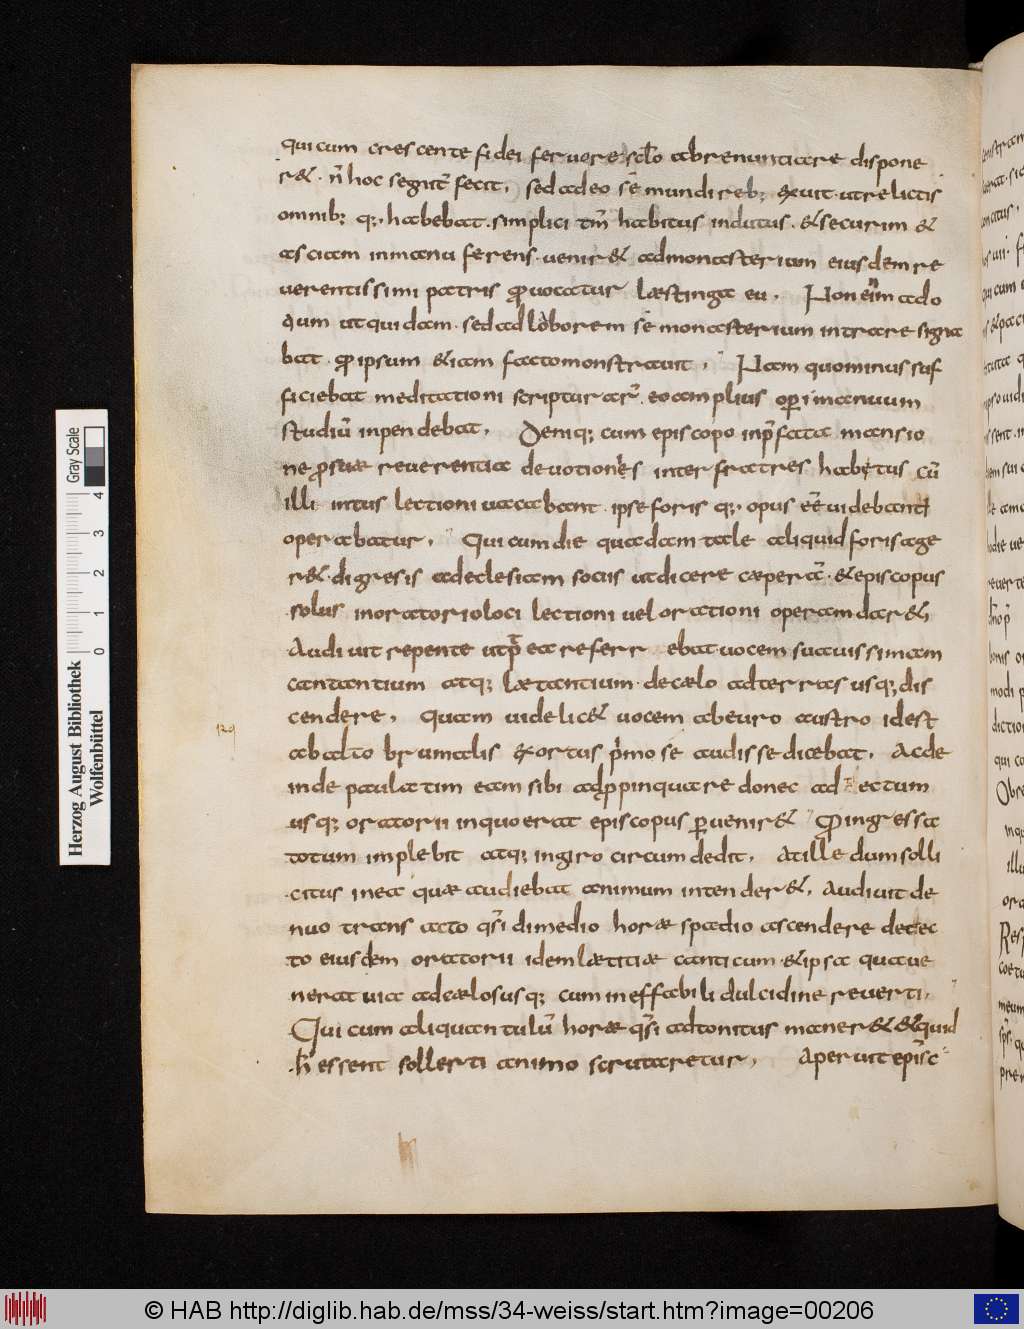 qui cum crescente fidei feruore sclo abrenuntiare dispone
r&. n̄ hoc segnit̄ fecit, sed adeo sē mundi reb; exuit. ut relictis
omnib; q; habebat. simplici tm̄ habitus indutus. & securim &
asciam in manu ferens. uenir& ad monasterium eiusdem re
uerentissimi patris ꝓuocatur læstinga eu. Non eni̅m ad o
tium ut quidam. sed ad laborem sē monasterium intrare signa
bat. ꝓ ipsum &iam facto monstrauit, Nam quo minus suf
ficiebat meditationi scripturar̄. eo amplius oꝑi manuum
studiū inpendebat, Deniq; cum episcopo in p̄fata mansio
ne ꝓ suæ reuerentia deuotiones inter fratres habetus cū
illi intus lectioni uacabant. ipse foris q; opus ēē uidebant
operabatur, Qui cum die quadam tale aliquid foris age
r&. digresis ad eclesiam sociis ut dicere cæperā. & episcopus
solus in oratorio loci lectioni uel orationi operam dar&
Audiuit repente ut p̄ ea referr ebat uocem suauissimam
cantantium atq; lætantium. de cælo ad terras usq; dis
cendere, quam uidelic& uocem ab euro austro id est
ab alto brumalis exortus p̄mo se audisse dicebat, Ac de
inde paulatim eam sibi adꝓpinquare donec ad tectum
usq; oratorii in quo erat episcopus ꝑuenir& Ꝓingressa
totum implebit atq; in giro circumdedit, At ille dum solli
citus in ea quæ audiebat animum intender&, Audiuit de
nuo transacto q̄si dimedio horæ spadio ascendere de tec
to eiusdem oratorii idem lætitiæ canticum. & ipsa qua ue
nerat uia ad cælos usq; cum ineffabili dulcidine reuerti,
Qui cum aliquantulū horæ q̄si adtonitus maner& & quid
h̄ essent sollerti animo scrutaretur, Aperuit episc
129
Herzog August Bibliothek
Wolfenbüttel
0 1 2 3 4
Gray Scale
© HAB http://diglib.hab.de/mss/34-weiss/start.htm?image=00206